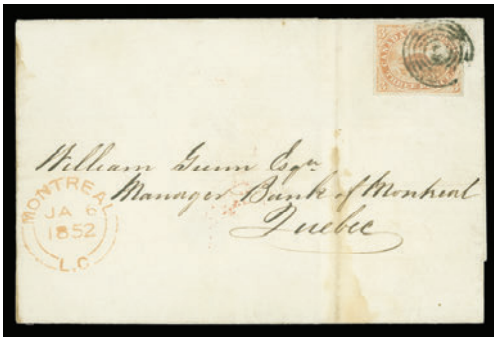 CANADA
THREE
William Gunn Esqr
Manager Bank of Montreal
Quebec
MONTREAL
JA 6
1852
L.C